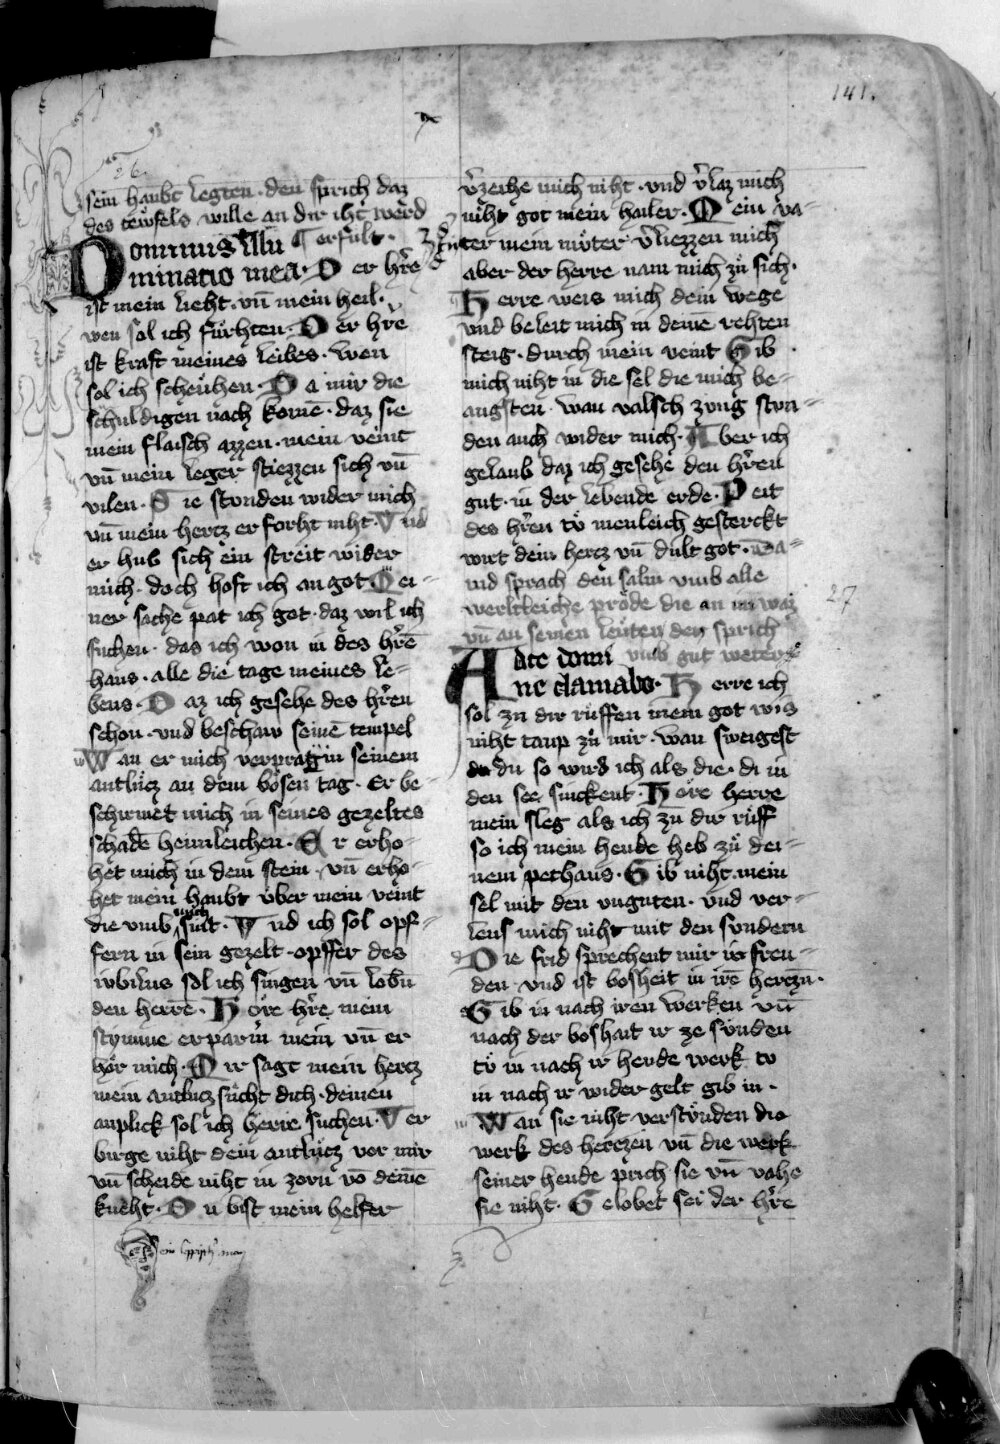 141.
26.
sein haubt legten · den sprich daz
des tewfels wille an dir iht werd
Dominus illu ¶ erfult ·
minatio mea · Der hr̄e
ist mein lieht · vn̄ mein heil ·
wen sol ich fürhten · Der hr̄e
ist kraft meines leibes · wen
sol ich scheühen · Da mir die
schuldigen nach komē · daz sie
mein flaisch azzen · mein veint
vn̄ mein leger stiezzen sich vn̄
vilen · Sie stonden wider mich
vn̄ mein hercz erforht niht · Vnd
er hub sich ein streit wider
mich · doch hoft ich an got Ei-
ner sache pat ich got · daz wil ich
suchen · das ich won in des hr̄ē
haus · alle die tage meines le-
bens · Daz ich gesehe des hr̄en
schon · vnd beschaw seinē tempel
Wan er mich verprag in seinem
antlücz an dem bösen tag · Er be-
schirmet mich in seines gezeltes
schadē heimleichen · Er erho-
het mich in dem stein · vn̄ erho-
het mein haubt über mein veint
die vmb mich sint · Vnd ich sol opf-
fern in sein gezelt · opffer des
iubilus sol ich singen vn̄ lobn̄
den herrē · Höre hr̄e mein
stymme erparm̄ mein vn̄ er
hör mich · Dir sagt mein hercz
mein antlucz sücht dich · deinen
anplick sol ich herre suchen · Ver
birge niht dein antlücz vor mir
vn̄ scheide niht in zorn vō deinē
kneht · Du bist mein helfer
v̄zeihe mich niht · vnd v̄laz mich
niht got mein hailer · Mein va-
ter mein müter v̄liezzen mich
aber der herre nam mich zü sich ·
Herre weis mich dein wege
vnd beleit mich in deinē rehten
steig · durch mein veint Gib
mich niht in die sel die mich be-
angsten · wan valsch zvng ston-
den auch wider mich · Aber ich
gelaub daz ich gesehe den hr̄en
gut · in der lebende erde · Peit
des hr̄en tü menleich gesterckt
wirt dein hercz vn̄ dult got · Da-
uid sprach den salm vmb alle
werltleiche pröde die an im waz 27
vn̄ an seinen leüten den sprich
Ad te domi vmb gut weter
ne clamabo · Herre ich
sol zu dir rüffen mein got wis
niht taup zü mir · wan sweigest
du so wird ich als die · di in
den see sinckent · Höre herre
mein fleg als ich zu dir rüff
so ich mein hende heb zü dei-
nem pethaus · Gib niht mein
sel mit den vnguten · vnd ver-
leus mich niht mit den sundern
Die frid sprechent mir ir freu-
den · vnd ist bosheit in irē herczn̄ ·
Gib in nach iren werken vn̄
nach der boshait ir ze sünden
tü in nach ir hende werk tv
in nach ir wider gelt gib in ·
Wan sie niht verstünden die
werk des herczen vn̄ die werk
seiner hende prich sie vn̄ vahe
sie niht · Gelobet sei der hr̄e